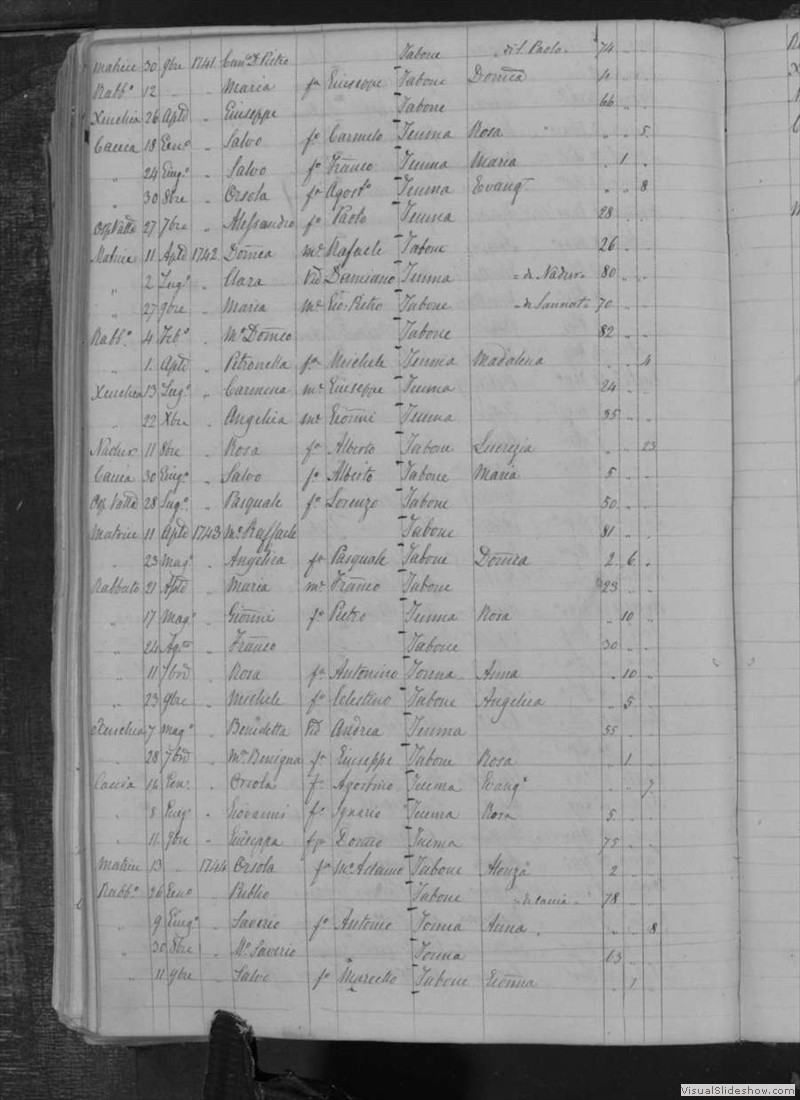 Matrice 30 9bre 1741 Can.o D. Pietro Tabone di S. Paolo 74 " "
Rabb.o 12 " " Maria fa Giuseppe Tabone Dom̃ca "
Xeuchia 26 Aple " Giuseppe Tabone 66 " "
Caccia 18 Gen.o " Salvo fo Carmelo Teuma Rosa " " 5
" 24 Giug.o " Salvo fo Franco Teuma Maria " 1 "
" 30 8bre " Orsola fa Agost.o Teuma Evang.a " " 8
Osp. Vall.a 27 7bre " Alessandro fo Paolo Teuma 28 " "
Matrice 11 Aple 1742 Dom̃ca me Rafaele Tabone 26 " "
" 2 Lug.o " Clara Vid Damiano Teuma = di Nadur = 80 " "
" 27 9bre " Maria me Gio: Pietro Tabone = di Sannat = 70 " "
Rabb.o 4 Feb.o " M.o Dom̃co Tabone 82 " "
" 1 Aple " Petronella fa Michele Teuma Madalena " " 4
Xeuchia 13 Lug.o " Carmena me Giuseppe Teuma 24 " "
" 22 Xbre " Angelica me Giom̃i Teuma 35 " "
Nadur 11 8bre " Rosa fa Alberto Tabone Lucrezia " " 23
Caccia 30 Giug.o " Salvo fo Alberto Tabone Maria 5 " "
Osp. Vall.a 28 Lug.o " Pasquale fo Lorenzo Tabone 50 " "
Matrice 11 Aple 1743 M.o Raffaele Tabone 81 " "
" 23 Mag.o " Angelica fa Pasquale Tabone Dom̃ca 2 6 "
Rabbato 21 Aple " Maria me Franco Tabone 23 " "
" 17 Mag.o " Giom̃i fo Pietro Teuma Rosa " 10 "
" 24 Ag.to " Franco Tabone 30 " "
" 11 7bre " Rosa fa Antonino Touma Anna " 10 "
" 23 9bre " Michele fo Celestino Tabone Angelica " 5 "
Xeuchia 7 Mag.o " Benedetta Vid Andrea Teuma 55 " "
" 28 7bre " M.a Benigna fa Giuseppe Tabone Rosa " 1 "
Caccia 14 Gen.o " Orsola fa Agostino Teuma Evang.a " " 7
" 8 Giug.o " Giovanni fo Ignazio Teuma Rosa 5 " "
" 11 9bre " Giuseppa Dom̃co Teuma 75 " "
Matrice 13 " 1744 Orsola fa M.o Adamo Tabone Alonza 2 " "
Rabb.o 26 Gen.o " Publio Tabone 78 " "
" 9 Giug.o " Saverio fo Antonio Touma Anna " " 8
" 30 8bre " M.o Saverio Touma 63 " "
" 11 9bre " Salvo fo Marcello Tabone Giom̃a " 1
VisualSlideshow.com